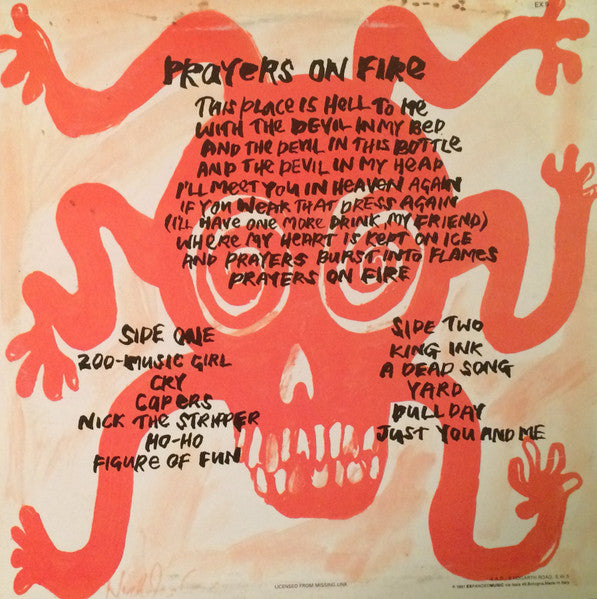 EX 9
PRAYERS ON FIRE
THIS PLACE IS HELL TO ME
WITH THE DEVIL IN MY BED
AND THE DEVIL IN THIS BOTTLE
AND THE DEVIL IN MY HEAD
I'LL MEET YOU IN HEAVEN AGAIN
IF YOU WEAR THAT DRESS AGAIN
(I'LL HAVE ONE MORE DRINK, MY FRIEND)
WHERE MY HEART IS KEPT ON ICE
AND PRAYERS BURST INTO FLAMES
PRAYERS ON FIRE
SIDE ONE
ZOO-MUSIC GIRL
CRY
CAPERS
NICK THE STRIPPER
HO-HO
FIGURE OF FUN
SIDE TWO
KING INK
A DEAD SONG
YARD
DULL DAY
JUST YOU AND ME
LICENSED FROM MISSING LINK
HOGARTH ROAD, S.W.5
1981 EXPANDED MUSIC Bologna, Made in Italy